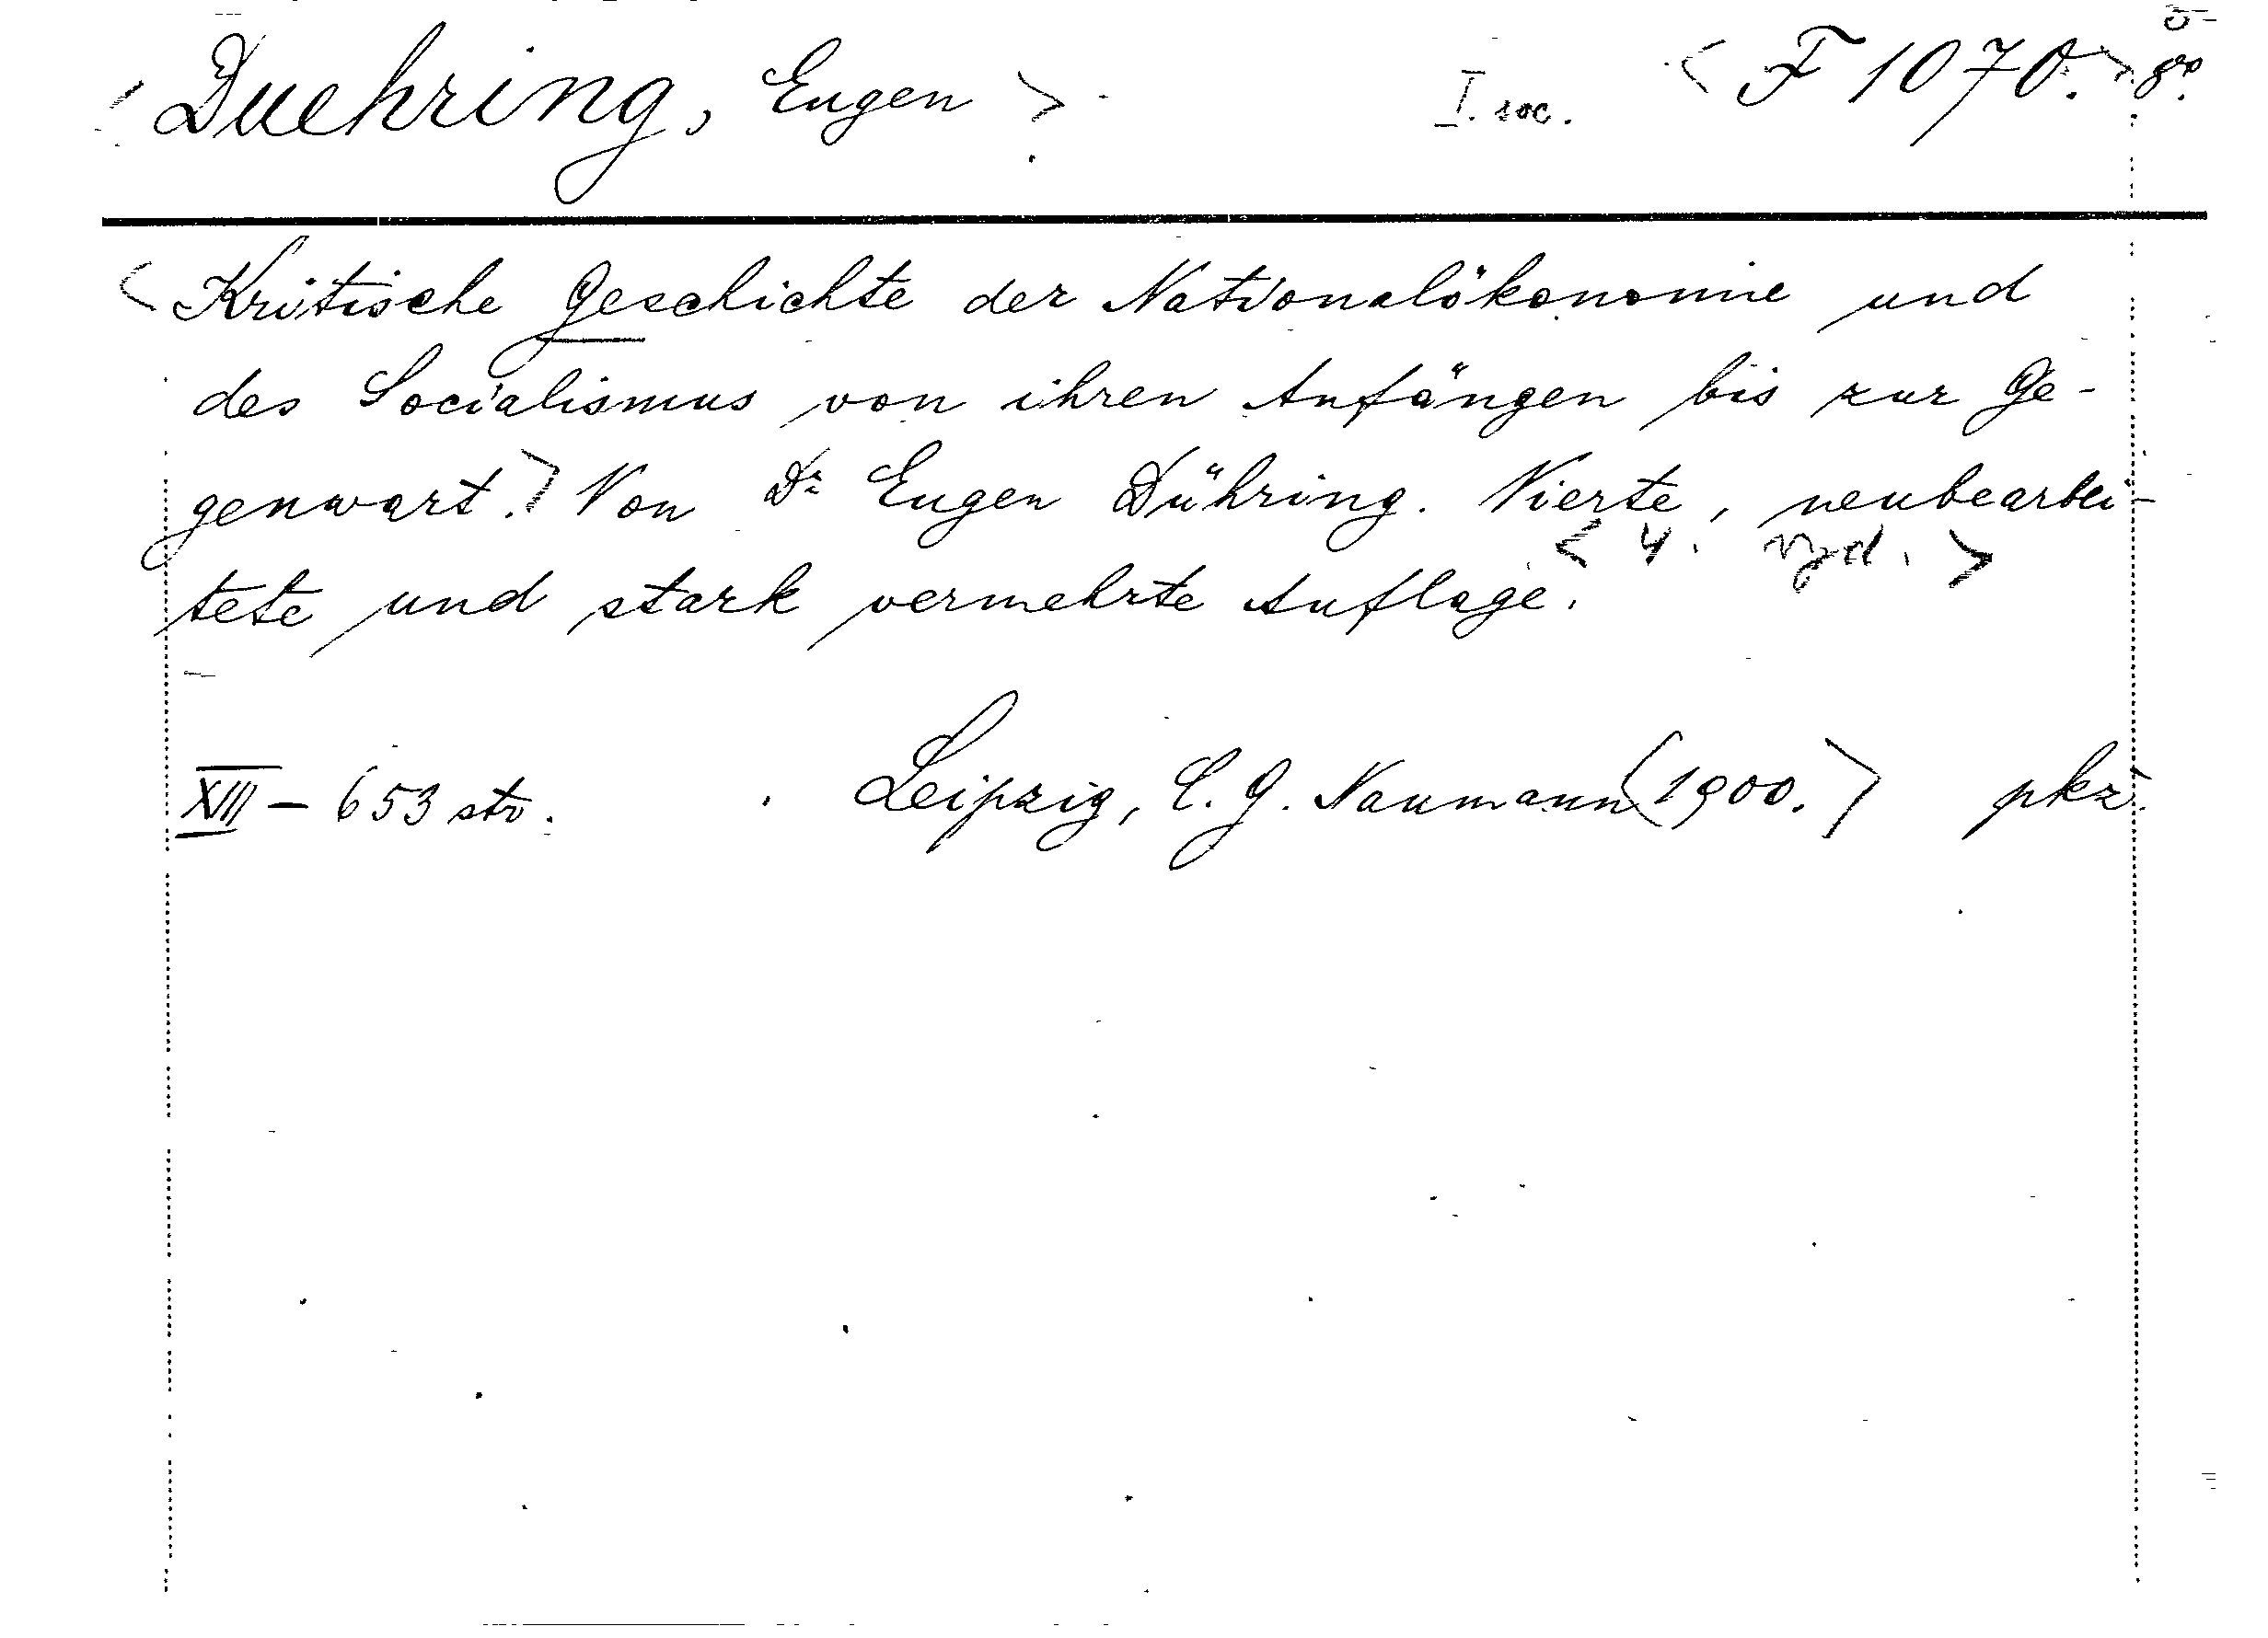 < Duehring, Eugen > I. soc. < F 1070. > 8º.
< Kritische Geschichte der Nationalökonomie und
des Socialismus von ihren Anfängen bis zur Ge-
genwart. > Von Dr Eugen Dühring. Vierte, neubearbei-
< 4. vyd. >
tete und stark vermehrte Auflage.
XIII – 653 str. Leipzig, C. G. Naumann < 1900. > pkz.